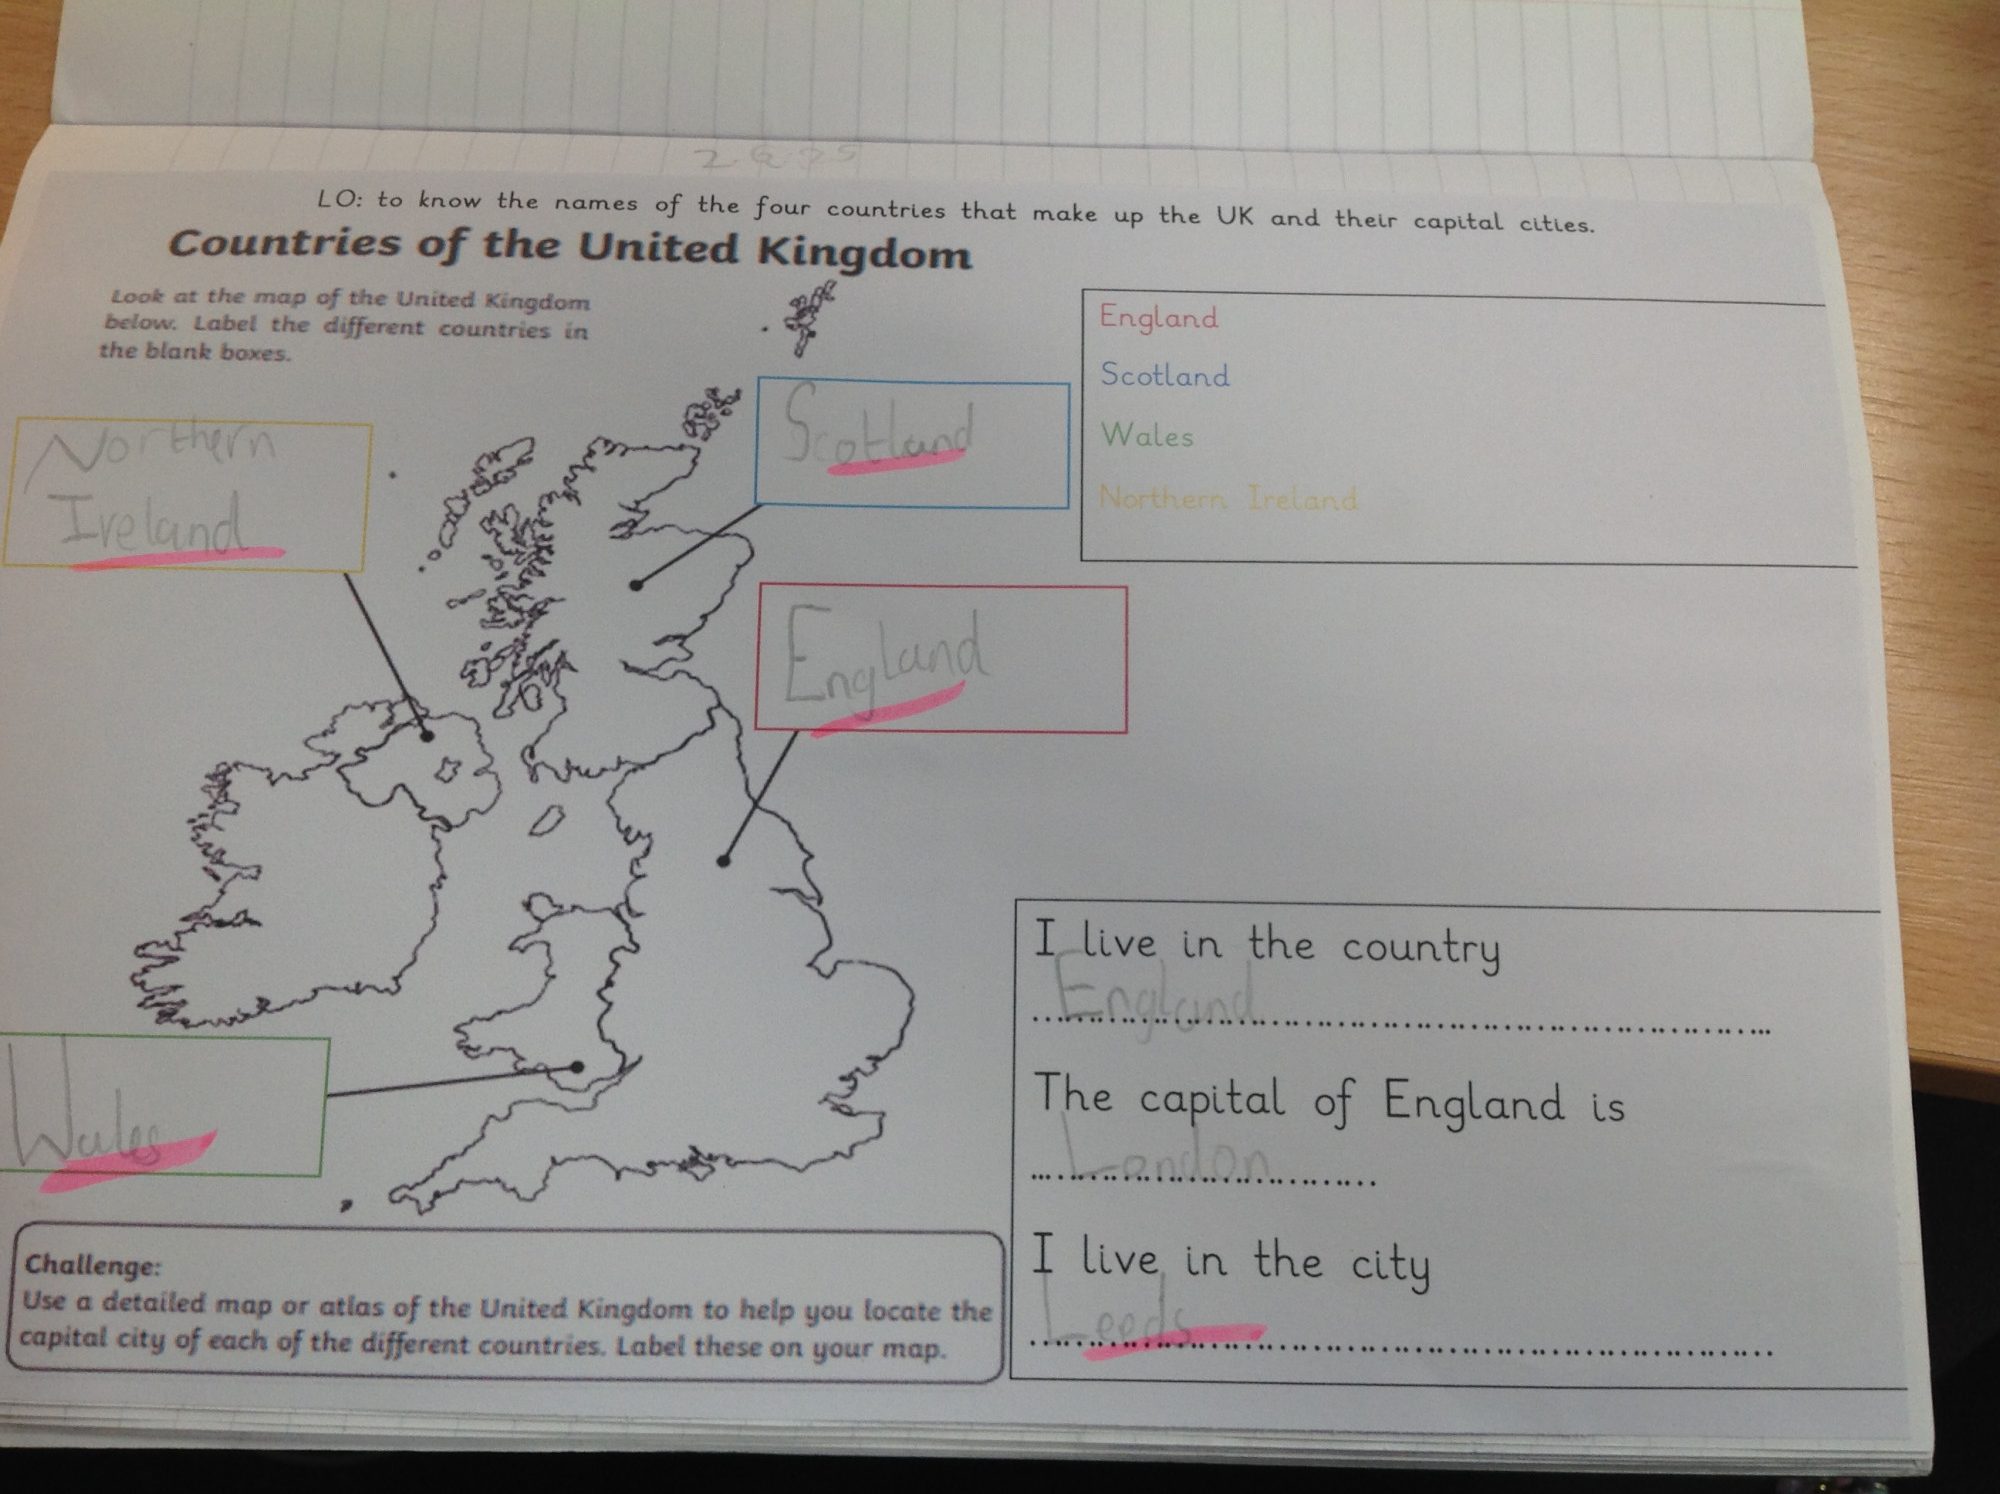 LO: to know the names of the four countries that make up the UK and their capital cities.
Countries of the United Kingdom
Look at the map of the United Kingdom
below. Label the different countries in
the blank boxes.
England
Scotland
Wales
Northern Ireland
Northern
Ireland
Scotland
England
Wales
I live in the country
England
The capital of England is
London
I live in the city
Leeds
Challenge:
Use a detailed map or atlas of the United Kingdom to help you locate the
capital city of each of the different countries. Label these on your map.